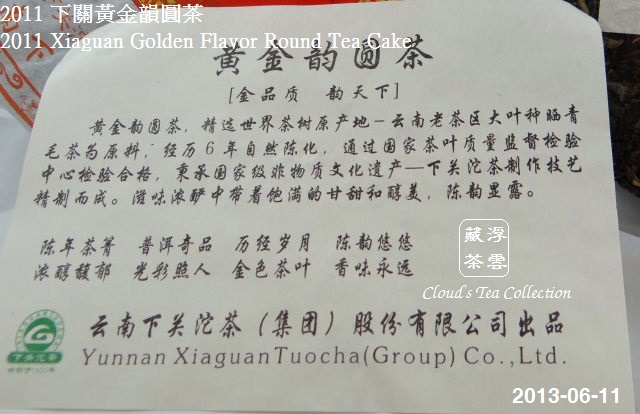 2011 下關黃金韻圓茶
2011 Xiaguan Golden Flavor Round Tea Cake
黄金韵圆茶
[金品质 韵天下]
黄金韵圆茶，精选世界茶树原产地—云南老茶区大叶种晒青
毛茶为原料，经历6年自然陈化，通过国家茶叶质量监督检验
中心检验合格，秉承国家级非物质文化遗产—下关沱茶制作技艺
精制而成。滋味浓酽中带着饱满的甘甜和醇美，陈韵显露。
陈年茶菁 普洱奇品 历经岁月 陈韵悠悠
浓醇馥郁 光彩照人 金色茶叶 香味永远
浮雲藏茶
Cloud's Tea Collection
云南下关沱茶（集团）股份有限公司出品
Yunnan XiaguanTuocha(Group)Co.,Ltd.
下关沱茶
2013-06-11